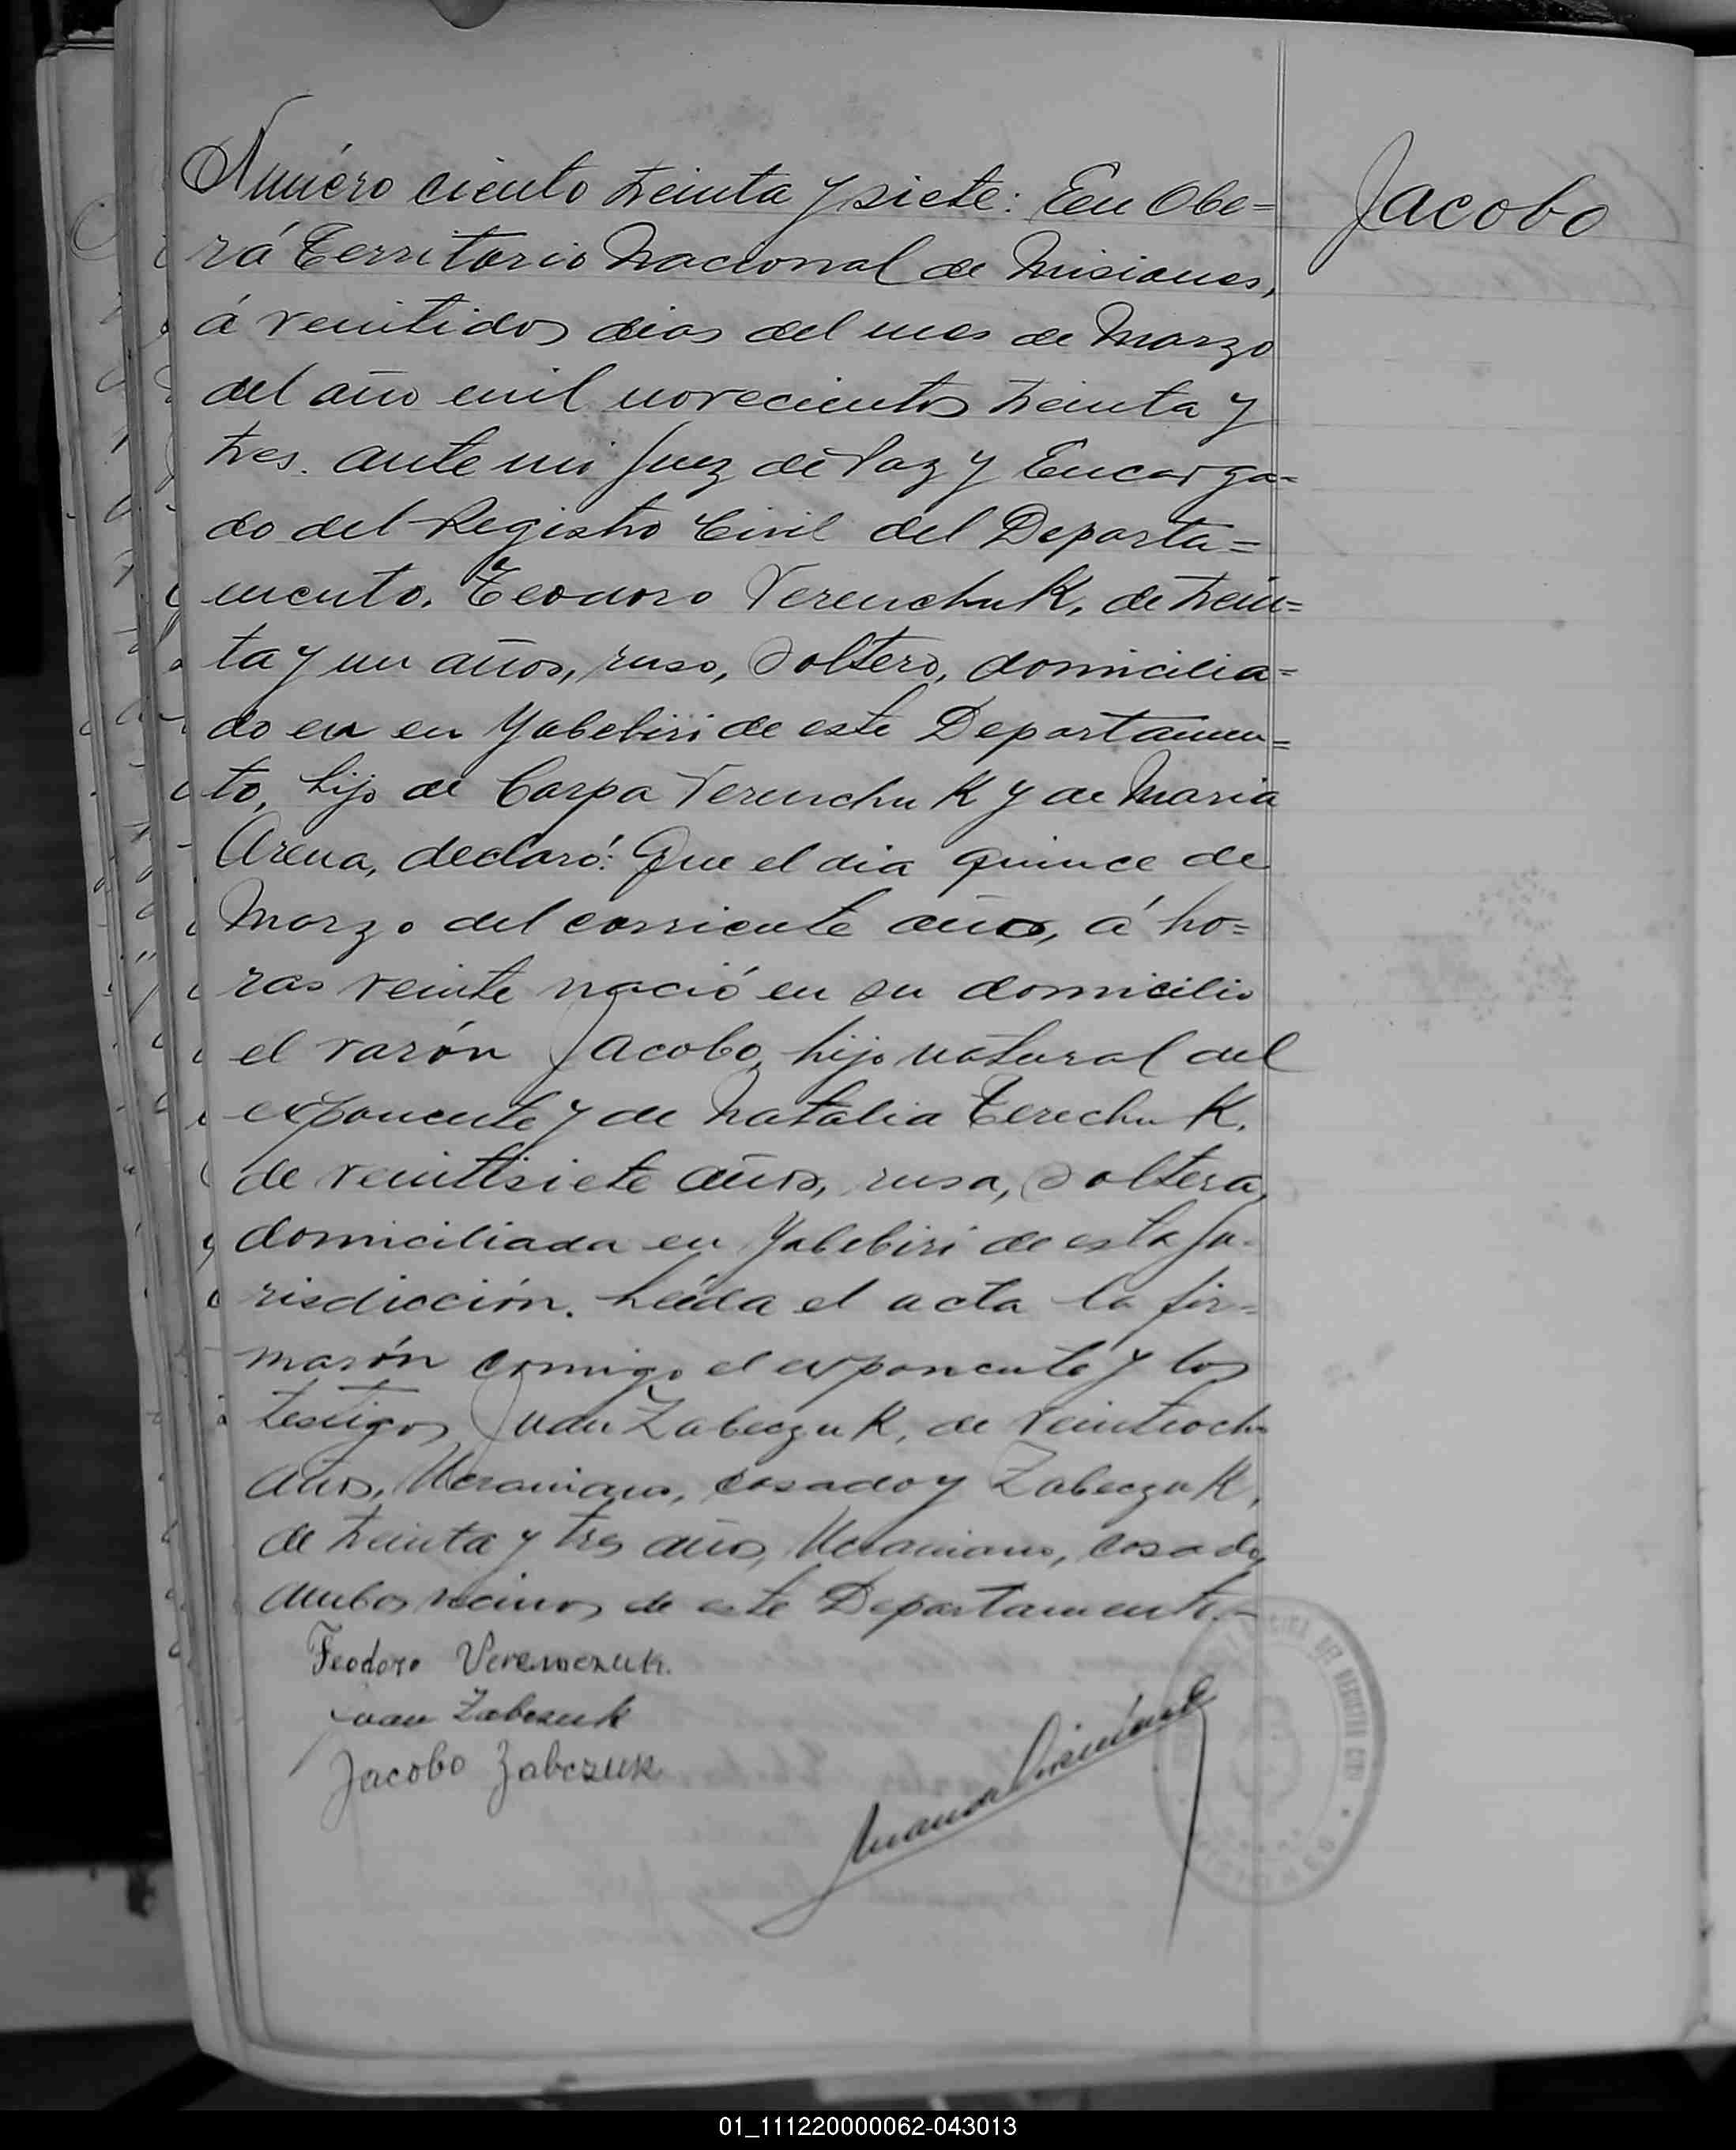 Número ciento treinta y siete: En Obe=
Jacobo
rá Territorio Nacional de Misiones,
á veintidos dias del mes de Marzo
del año mil novecientos treinta y
tres. ante mi Juez de Paz y Encarga=
do del Registro Civil del Departa=
mento. Teodoro Verenchuk, de trein=
ta y un años, ruso, Soltero, domicilia=
do en en Yabebiri de este Departamen=
to, hijo de Carpa Verenchuk y de Maria
Arena, declaró: Que el dia quince de
Marzo del corriente año, á ho=
ras veinte nació en su domicilio
el varón Jacobo, hijo natural del
exponente y de Natalia Terechuk,
de veintisiete años, rusa, Soltera,
domiciliada en Yabebiri de esta Ju=
risdicción. Leida el acta la fir=
marón comigo el exponente y los
testigos Juan Zabeczuk, de veintiocho
años, Ucraniano, casado y Zabeczuk,
de treinta y tres años, Ucraniano, casado,
ambos vecinos de este Departamento.-
Feodoro Veremczuk.
Juan Zabczuk
Jacobo Zabczuk
DEL REGISTRO CIVIL
MISIONES
01_111220000062-043013